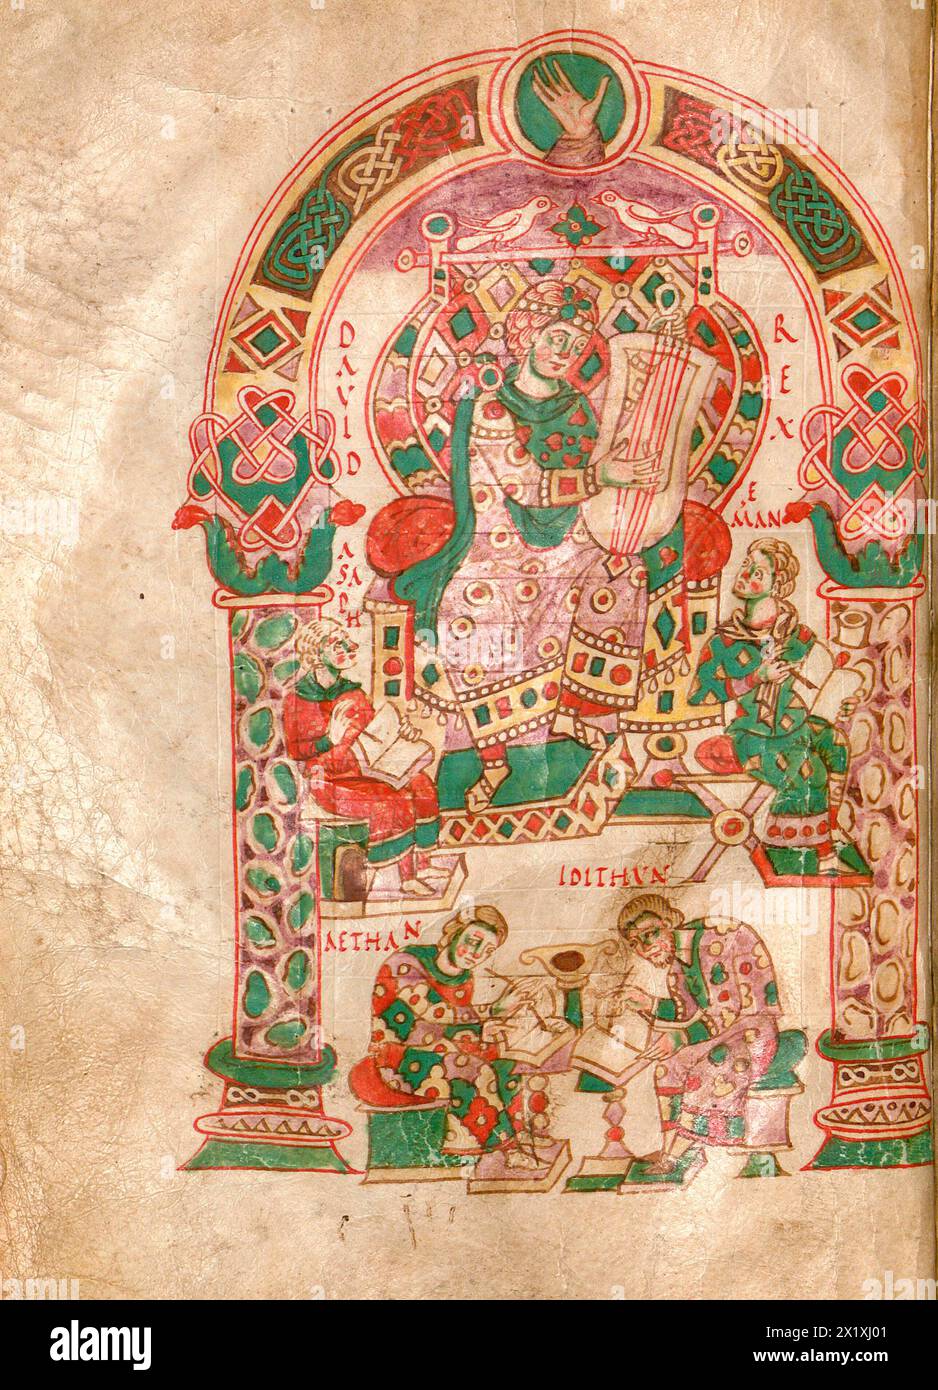 DAVID
REX
E
MAN
ASAPH
IDITHUN
AETHAN
alamy
Image ID: 2X1XJ01
www.alamy.com